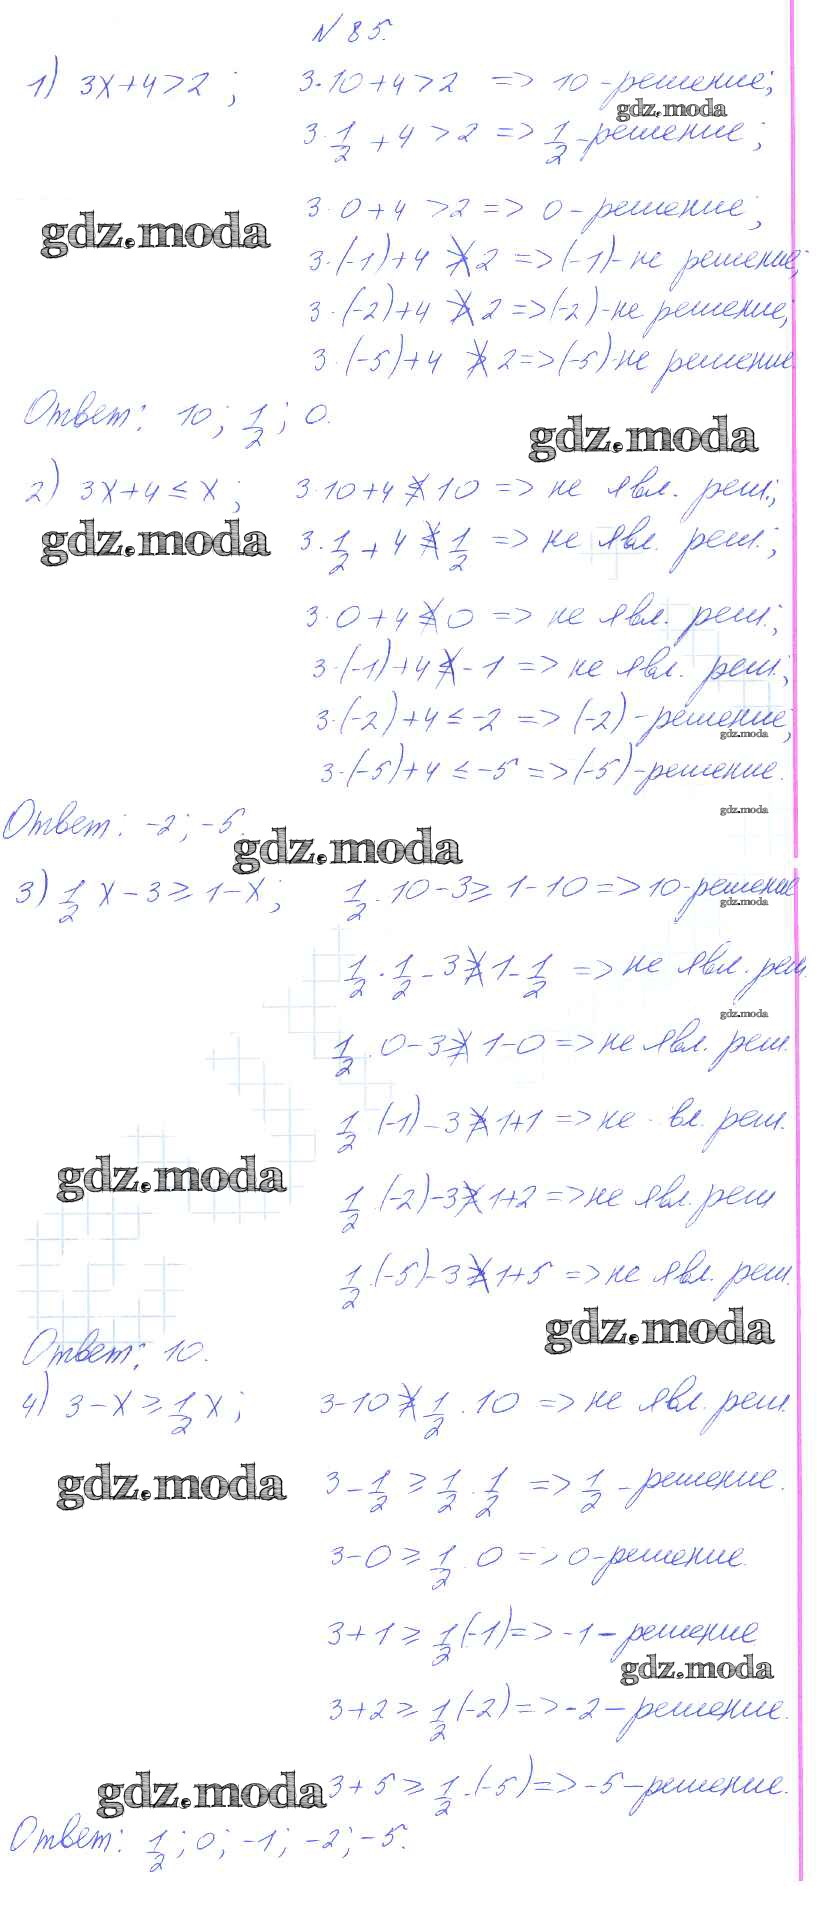 N 85.
1) 3x+4>2; 3·10+4>2 => 10-решение;
gdz.moda
3·1/2+4>2 => 1/2-решение;
3·0+4>2 => 0-решение;
gdz.moda
3·(-1)+4≯2 => (-1)-не решение;
3·(-2)+4≯2 => (-2)-не решение;
3·(-5)+4≯2 => (-5)-не решение.
Ответ: 10; 1/2; 0.
gdz.moda
2) 3x+4≤x; 3·10+4≰10 => не явл. реш.;
gdz.moda
3·1/2+4≰1/2 => не явл. реш.;
3·0+4≰0 => не явл. реш.;
3·(-1)+4≰-1 => не явл. реш.;
3·(-2)+4≤-2 => (-2)-решение;
gdz.moda
3·(-5)+4≤-5 => (-5)-решение.
gdz.moda
Ответ: -2; -5.
gdz.moda
3) 1/2x-3≥1-x; 1/2·10-3≥1-10 => 10-решение
gdz.moda
1/2·1/2-3≱1-1/2 => не явл. реш.
gdz.moda
1/2·0-3≱1-0 => не явл. реш.
1/2·(-1)-3≱1+1 => не вл. реш.
gdz.moda
1/2·(-2)-3≱1+2 => не явл. реш
1/2·(-5)-3≱1+5 => не явл. реш.
gdz.moda
Ответ: 10.
4) 3-x≥1/2x; 3-10≱1/2·10 => не явл. реш.
gdz.moda
3-1/2≥1/2·1/2 => 1/2-решение.
3-0≥1/2·0 => 0-решение.
3+1≥1/2(-1) => -1-решение
gdz.moda
3+2≥1/2(-2) => -2-решение.
gdz.moda
3+5≥1/2·(-5) => -5-решение.
Ответ: 1/2; 0; -1; -2; -5.